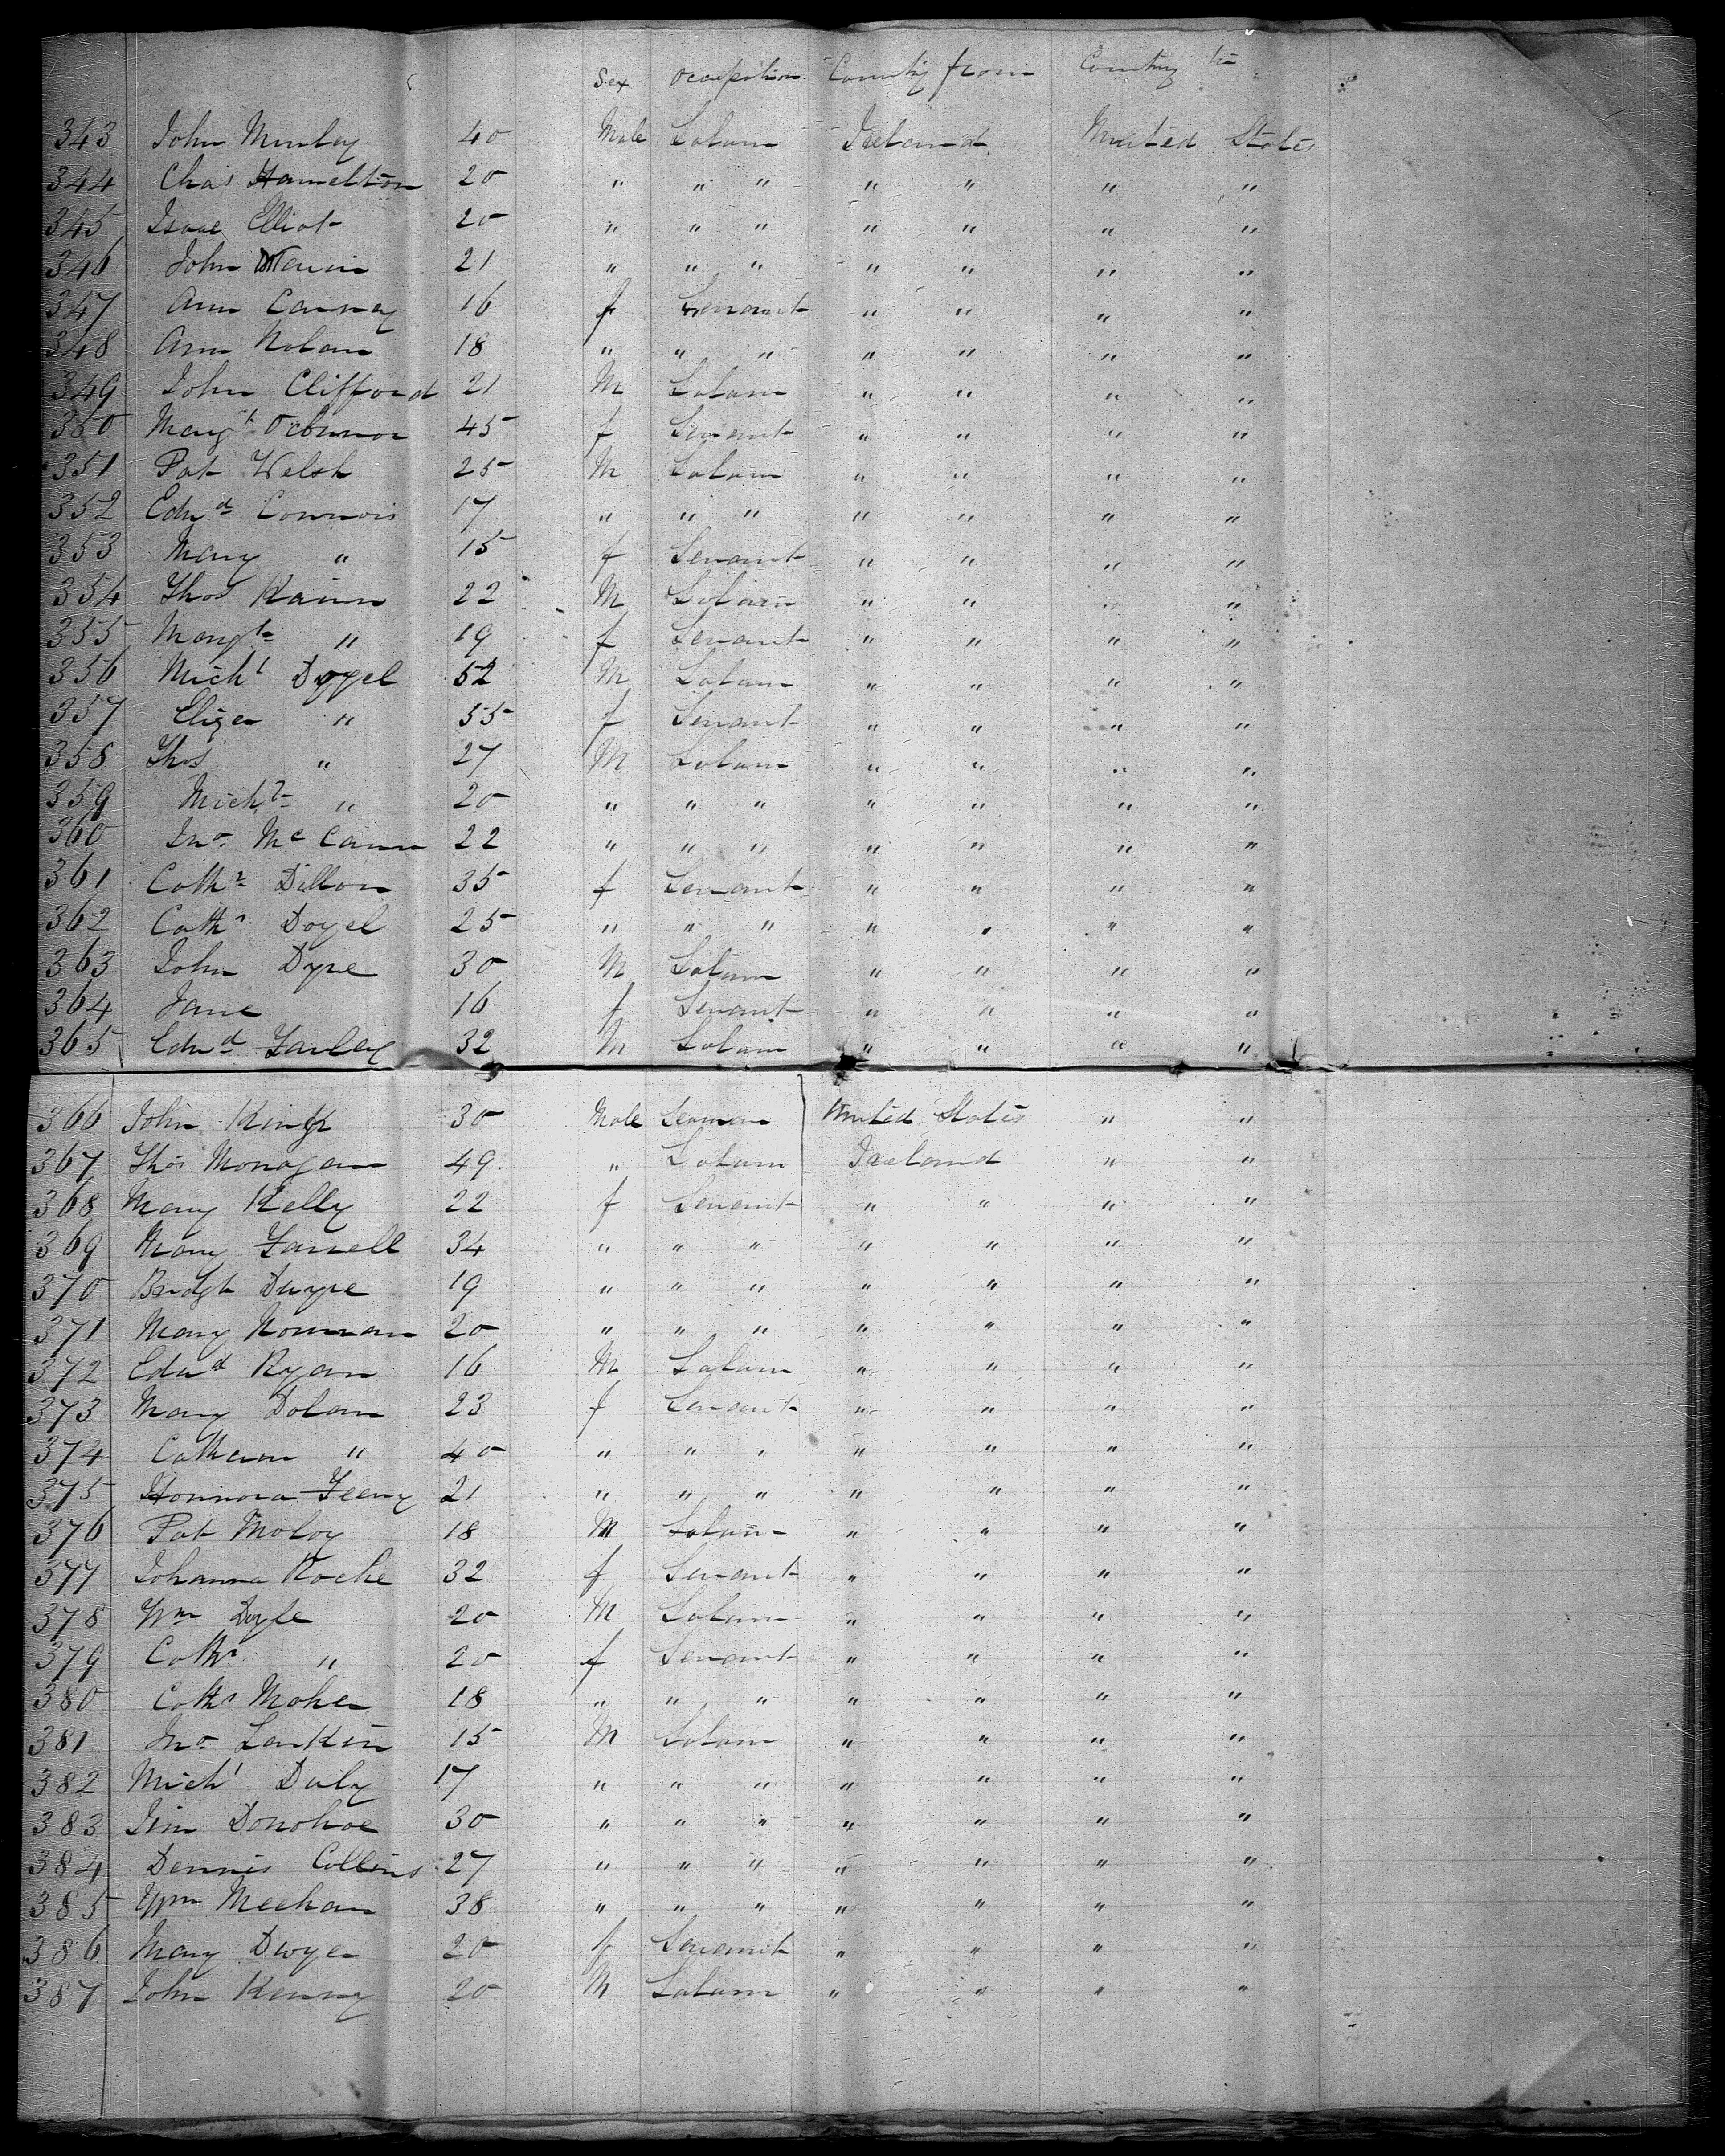 Sex Occupation Country from Country to
343 John Munley 40 Male Labour Ireland United States
344 Chas Hamelton 20 " " " " " " "
345 Isaac Elliot 20 " " " " " " "
346 John 21 " " " " " " "
347 Ann Canney 16 f Servant " " " "
348 Ann Nolan 18 " " " " " " "
349 John Clifford 21 M Labour " " " "
350 Margt OConnor 45 f Servant " " " "
351 Pat Welsh 25 M Labour " " " "
352 Edwd Connors 17 " " " " " " "
353 Mary " 15 f Servant " " " "
354 Thos Kainn 22 M Labour " " " "
355 Margt " 19 f Servant " " " "
356 Michl Doyel 52 M Labour " " " "
357 Eliza " 55 f Servant " " " "
358 Thos " 27 M Labour " " " "
359 Michl " 20 " " " " " " "
360 Jno. Mc Cann 22 " " " " " " "
361 Cathn Dillon 35 f Servant " " " "
362 Cathn Doyel 25 " " " " " " "
363 John Dyre 30 M Labour " " " "
364 Jane 16 f Servant " " " "
365 Edwd Farley 32 M Labour " " " "
366 John King 30 Male Seaman United States " "
367 Thos Monagan 49 " Labour Ireland " "
368 Mary Kelly 22 f Servant " " " "
369 Mary Farrell 34 " " " " " " "
370 Bridgt Dwyre 19 " " " " " " "
371 Mary Nounan 20 " " " " " " "
372 Edwd Ryan 16 M Labour " " " "
373 Mary Dolan 23 f Servant " " " "
374 Cathern " 40 " " " " " " "
375 Honnora Feeny 21 " " " " " " "
376 Pat Moloy 18 M Labour " " " "
377 Johanna Roche 32 f Servant " " " "
378 Wm Doyle 20 M Labour " " " "
379 Cathn " 20 f Servant " " " "
380 Cathn Maher 18 " " " " " " "
381 Jno. Larkin 15 M Labour " " " "
382 Michl Daly 17 " " " " " " "
383 Jim Donohoe 30 " " " " " " "
384 Dennis Collins 27 " " " " " " "
385 Wm Meehan 38 " " " " " " "
386 Mary Dwyer 20 f Servant " " " "
387 John Kenny 20 M Labour " " " "